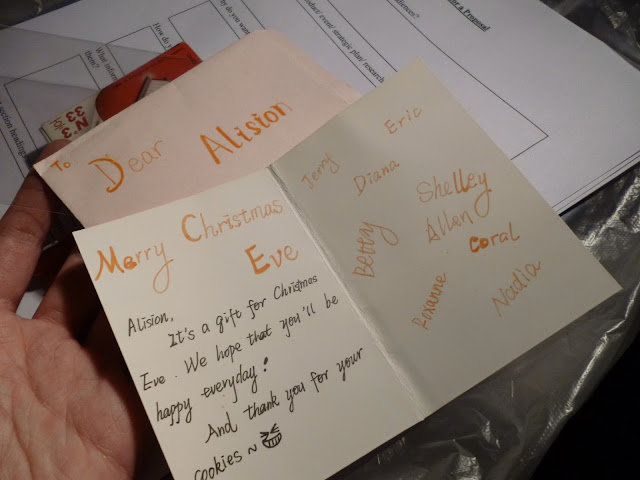 for a Proposal
audiences?
event/ strategic plan/ research
How do
What
them?
To
Dear Alision
Merry Christmas
Eve
Alision,
It's a gift for Christmas
Eve. We hope that you'll be
happy everyday!
And thank you for your
cookies~
Jerry
Eric
Diana
Shelley
Bettey
Allen
Coral
Roxanne
Nadia